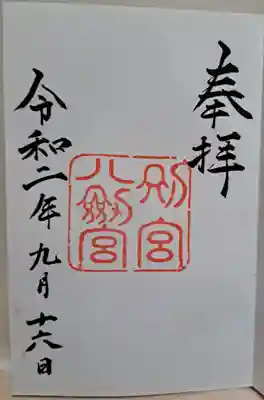 奉拝
別宮
八剣宮
令和二年九月十六日